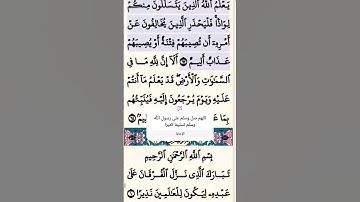 يَعْلَمُ ٱللَّهُ ٱلَّذِينَ يَتَسَلَّلُونَ مِنكُمْ
لِوَاذًا فَلْيَحْذَرِ ٱلَّذِينَ يُخَالِفُونَ عَنْ
أَمْرِهِۦٓ أَن تُصِيبَهُمْ فِتْنَةٌ أَوْ يُصِيبَهُمْ
عَذَابٌ أَلِيمٌ ۝ أَلَآ إِنَّ لِلَّهِ مَا فِى
ٱلسَّمَٰوَٰتِ وَٱلْأَرْضِ قَدْ يَعْلَمُ مَآ أَنتُمْ
عَلَيْهِ وَيَوْمَ يُرْجَعُونَ إِلَيْهِ فَيُنَبِّئُهُم
بِمَا
اللهم صل وسلم على رسول الله
وسلم تسليما كثيرا
بِسْمِ ٱللَّهِ ٱلرَّحْمَٰنِ ٱلرَّحِيمِ
تَبَارَكَ ٱلَّذِى نَزَّلَ ٱلْفُرْقَانَ عَلَىٰ
عَبْدِهِۦ لِيَكُونَ لِلْعَٰلَمِينَ نَذِيرًا ۝